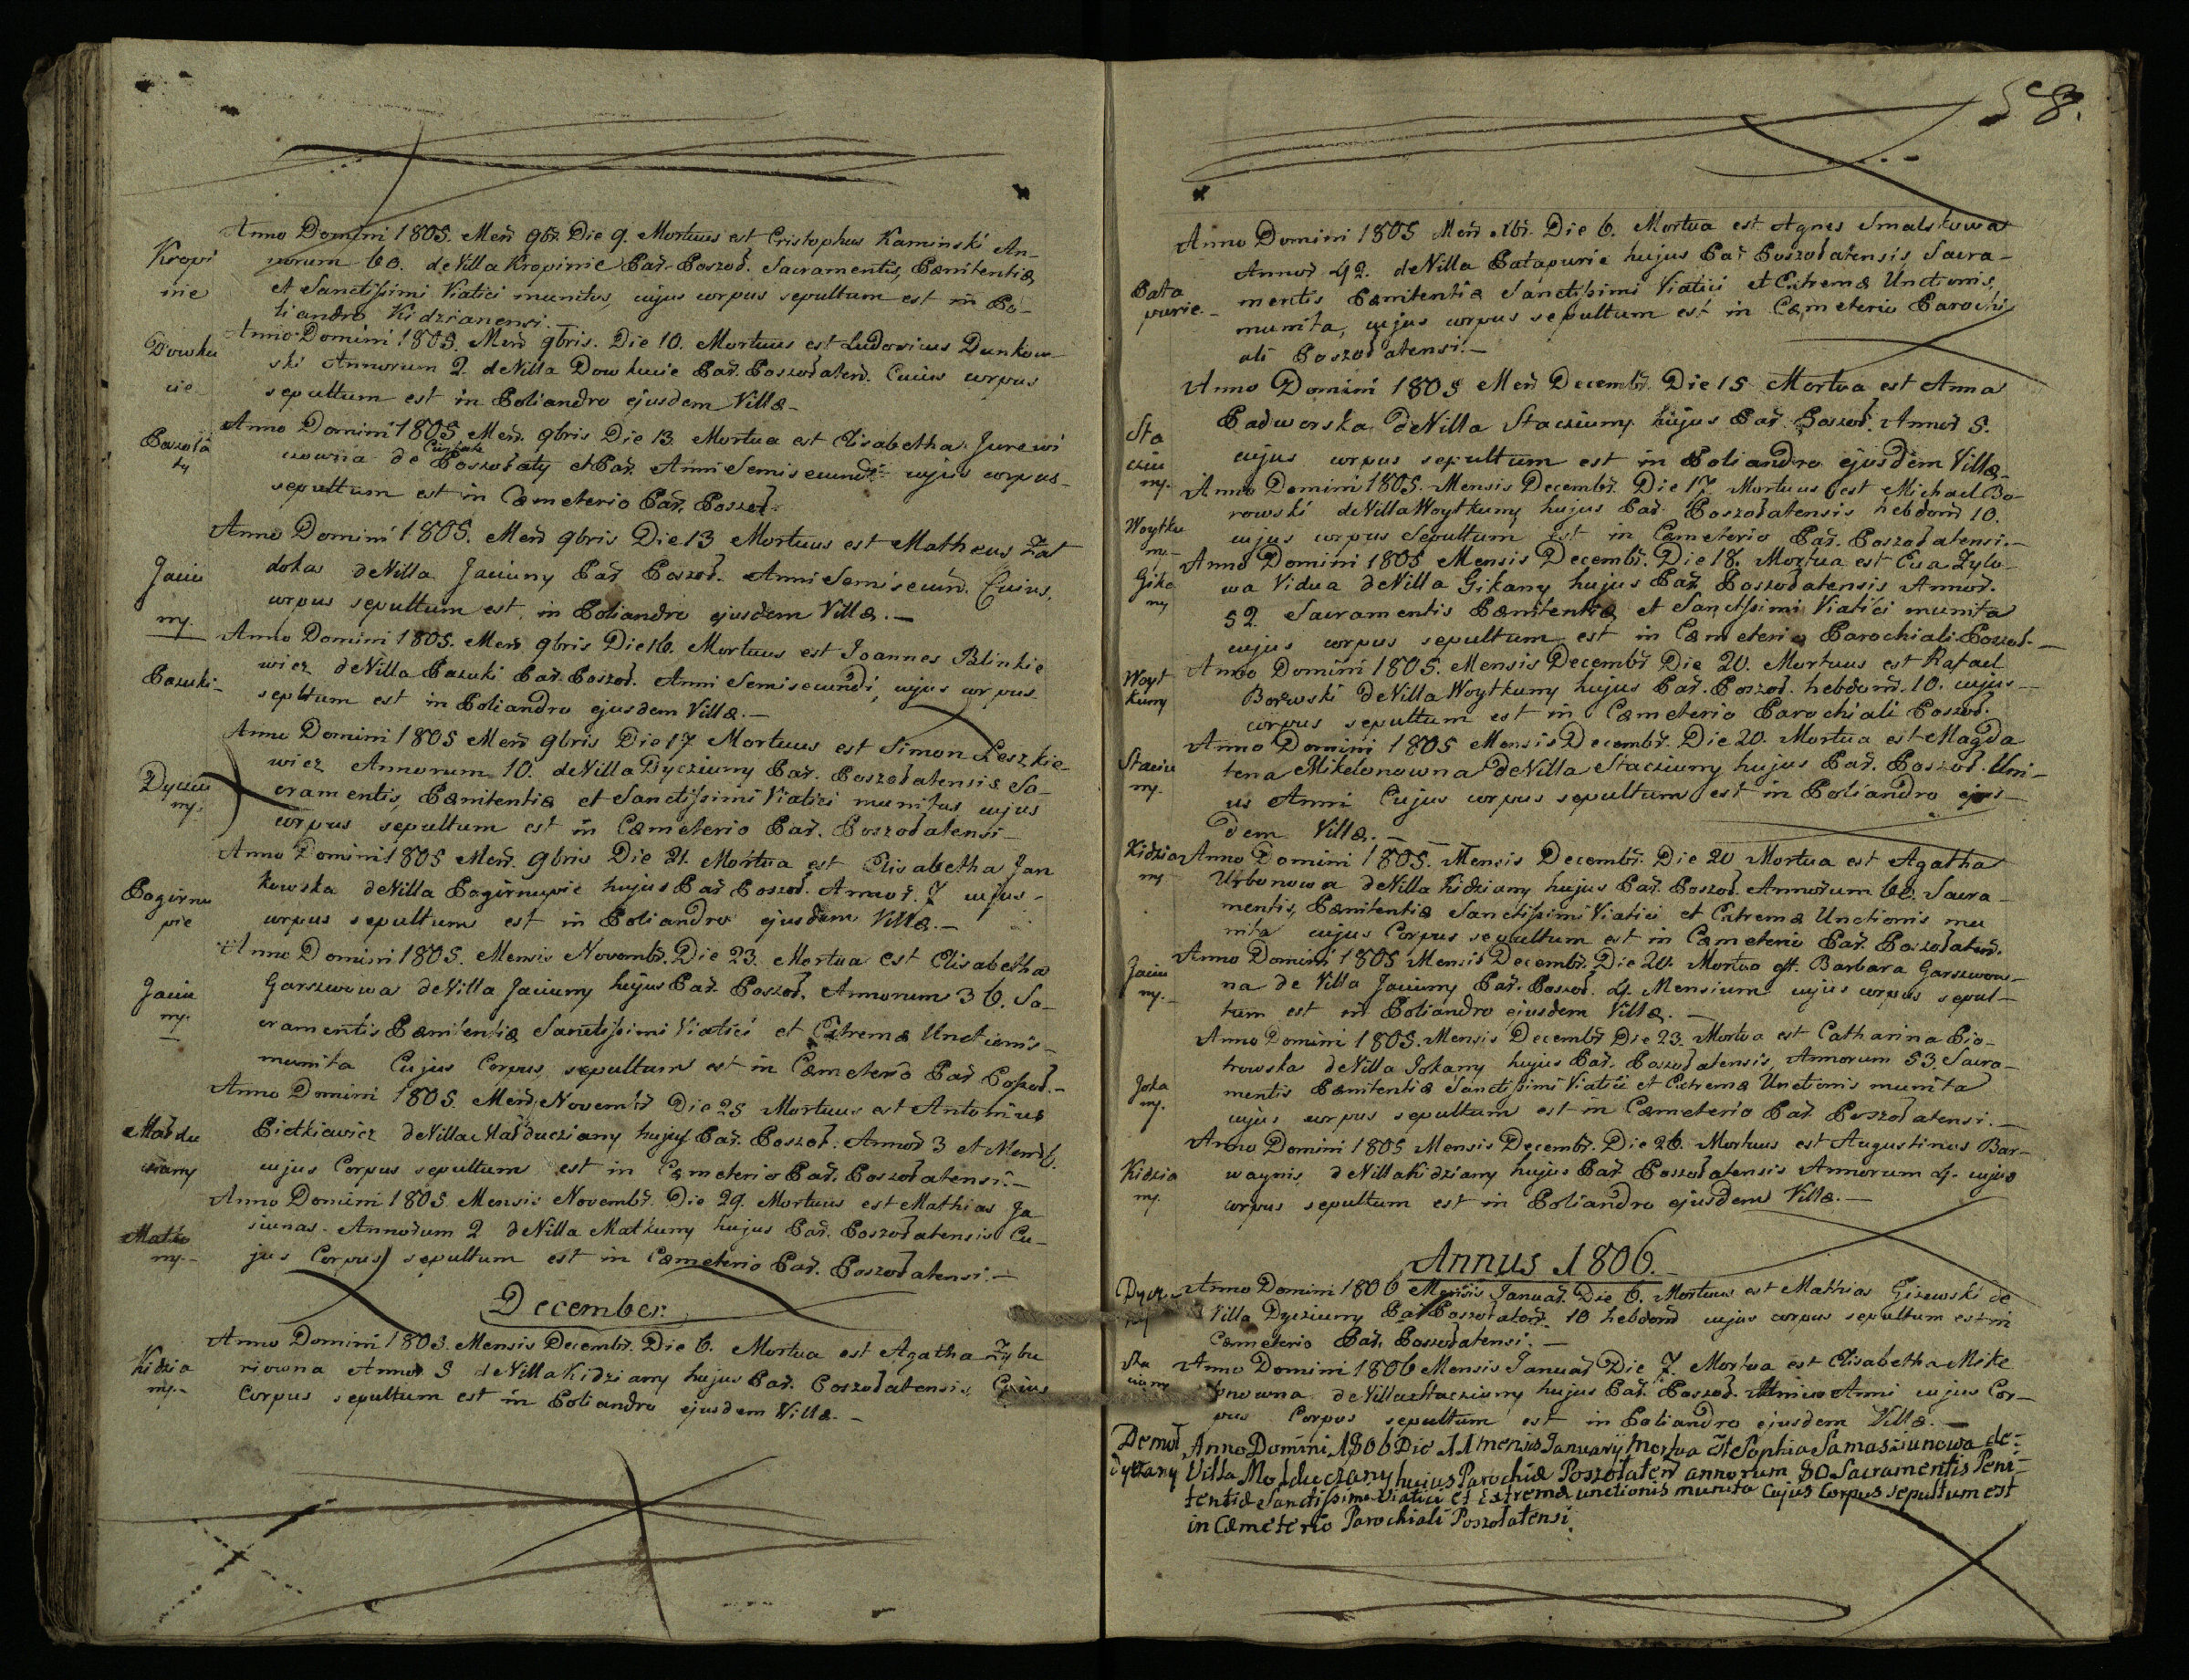 Anno Domini 1805. Meñ 9br̃. Die 9. Mortuus est Cristophus Kaminski An-
Kropi
norum 60. de Villa Kropinie Par̃. Poszoł. Sacramentis, Pænitentiæ
nie
et Sanctissimi Viatici munitus, cujus corpus sepultum est in Po-
liandro Kidzianensi.
Anno Domini 1805. Meñ 9bris. Die 10. Mortuus est Ludovicus Dunkow-
Dowku
ski Annorum 2. de Villa Dowkucie Par̃. Poszołateñ. Cuius corpus
cie
sepultum est in Poliandro ejusdem Villæ-
Anno Domini 1805 Meñ. 9bris Die 13 Mortua est Elisabetha Jurewi
Poszoła
ty
czowna de Poszołaty et Par̃. Anni Semisecundi cujus corpus-
sepultum est in Cæmeterio Par̃. Poszoł.
Anno Domini 1805. Meñ 9bris Die 13 Mortuus est Matheus Zat
Jaciu
dokas de Villa Jaciuny Par̃ Poszoł. Anni Semisecun̄d. Cuius.
corpus sepultum est in Poliandro ejusdem Villæ.-
ny.
Anno Domini 1805. Meñ 9bris Die 16. Mortuus est Joannes Blinkie
Pazuki-
wicz de Villa Pazuki Par̃. Poszoł. Anni Semisecundi, cujus corpus
sepltum est in Poliandro ejusdem Villæ.-
Anno Domini 1805 Meñ 9bris Die 17 Mortuus est Simon Leszkie-
wicz Annorum 10. de Villa Dycziuny Par̃. Poszołatensis Sa-
Dycziu
ny.
cramentis, Pænitentiæ et Sanctissimi Viatici munitus cujus
corpus sepultum est in Cæmeterio Par̃. Poszołatensi-
Anno Domini 1805 Meñ. 9bris Die 21. Mortua est Elisabetha Jan
Pogirnu
kowska de Villa Pogirnupie hujus Par̃ Poszoł. Annor̃. 7 cujus-
pie
corpus sepultum est in Poliandro ejusdem Villæ.-
Anno Domini 1805. Mensis Novembr̃. Die 23. Mortua est Elisabetha
Jaciu
Garszwowa de Villa Jaciuny hujus Par̃. Poszoł. Annorum 36. Sa-
ny.
cramentis Pænitentiæ Sanctissimi Viatici et Extremæ Unctionis-
munita Cujus Corpus sepultum est in Cæmeterio Par̃ Poszoł.-
Anno Domini 1805. Meñ. Novembr̃ Die 25 Mortuus est Antonius
Mołdu
Pietkiewicz de Villa Mołducziany hujus Par̃. Poszoł. Annor̃ 3 et Mens 6.
cziany
cujus Corpus sepultum est in Cæmeterio Par̃. Poszołatensi.-
Anno Domini 1805 Mensis Novembr̃. Die 29. Mortuus est Mathias Ja
siunas. Annorum 2 de Villa Matkuny hujus Par̃. Poszołatensis Cu-
Matku
ny-
jus Corpus sepultum est in Cæmeterio Par̃. Poszołatensi.-
December.
Anno Domini 1805. Mensis Decembr̃. Die 6. Mortua est Agatha Zybu
Kidzia
riowna Annor̃ 5 de Villa Kidziany hujus Par̃. Poszołatensis, Cuius
ny.-
Corpus sepultum est in Poliandro ejusdem Villæ.-
58.
Anno Domini 1805 Meñ xbr̃. Die 6. Mortua est Agnes Smalskowa
Annor̃ 42. de Villa Patapurie hujus Par̃ Poszołatensis Sacra-
Pata
purie.-
mentis Pænitentiæ Sanctissimi Viatici et Extremæ Unctionis,
munita, cujus corpus sepultum est in Cæmeterio Parochi
ali Poszołatensi.-
Anno Domini 1805 Meñ Decembr̃. Die 15 Mortua est Anna
Sta
Padworska de Villa Stacziuny hujus Par̃. Poszoł. Annor̃ 5.
cziu
ny.
cujus corpus sepultum est in Poliandro ejusdem Villæ-
Anno Domini 1805. Mensis Decembr̃. Die 17 Mortuus est Michael Bo-
Woytku
rowski de Villa Woytkuny hujus Par̃. Poszołatensis hebdom̃ 10.
ny.-
cujus corpus Sepultum est in Cæmeterio Par̃. Poszołatensi.-
Anno Domini 1805 Mensis Decembr̃. Die 18. Mortua est Eva Zylo-
Gika
ny
wa Vidua de Villa Gikany hujus Par̃ Poszołatensis Annor̃.
52 Sacramentis Pænitentiæ et Sanctissimi Viatici munita
cujus corpus sepultum est in Cæmeterio Parochiali Poszoł.-
Anno Domini 1805. Mensis Decembr̃ Die 20. Mortuus est Rafael
Woyt
kuny
Borowski de Villa Woytkuny hujus Par̃. Poszoł. hebdom̃. 10. cujus-
corpus sepultum est in Cæmeterio Parochiali Poszoł.
Anno Domini 1805 Mensis Decembr̃. Die 20. Mortua est Magda
Staciu
ny.
lena Mikelonowna de Villa Stacziuny hujus Par̃. Poszoł. Uni-
us Anni Cujus corpus sepultum est in Poliandro ejus-
dem Villæ.-
Kidzia
ny
Anno Domini 1805. Mensis Decembr̃. Die 20 Mortua est Agatha
Urbonowa de Villa Kidziany hujus Par̃. Poszoł. Annorum 60. Sacra-
mentis, Pænitentiæ Sanctissimi Viatici et Extremæ Unctionis mu
nita cujus Corpus sepultum est in Cæmeterio Par̃. Poszołateñ.
Anno Domini 1805 Mensis Decembr̃. Die 20. Mortua est. Barbara Garszwow-
Jaciu
ny.-
na de Villa Jaciuny Par̃. Poszoł. 4. Mensium cujus corpus sepul-
tum est in Poliandro ejusdem Villæ.-
Anno Domini 1805. Mensis Decembr̃ Die 23. Mortua est Catharina Pio-
trowska de Villa Jokany hujus Par̃. Poszołatensis, Annorum 53. Sacra-
Joka
ny.
mentis Pænitentiæ Sanctissimi Viatici et Extremæ Unctionis munita
cujus corpus sepultum est in Cæmeterio Par̃ Poszołatensi.-
Anno Domini 1805 Mensis Decembr̃. Die 26. Mortuus est Augustinus Bar-
Kidzia
ny.
waynis, de Villa Kidziany hujus Par̃ Poszołatensis Annorum 4. cujus
corpus sepultum est in Poliandro ejusdem Villæ.-
Annus 1806.
Anno Domini 1806 Mensis Januar̃. Die 6. Mortuus est Mathias Gizewski de
Dycz
Villa Dycziuny Par̃ Poszołateñ. 10 hebdom̃ cujus corpus sepultum est in
Cæmeterio Par̃. Poszołatensi.-
Anno Domini 1806 Mensis Januar̃ Die 7. Mortua est Elisabetha Mike
Sta
ciuny
lonowna de Villa Stacziuny hujus Par̃. Poszoł. Unius Anni cujus Cor-
pus Corpus sepultum est in Poliandro ejusdem Villæ.-
Anno Domini 1806 Die 11 mensis Januarij Mortua est Sophia Samasziunowa de
Villa Mołduczany hujus Parochiæ Poszołateñ annorum 80 Sacramentis Peni-
tentiæ Sanctissimi Viatici et Extremæ unctionis munita Cujus Corpus sepultum est
in Cæmeterio Parochiali Poszołatensi.